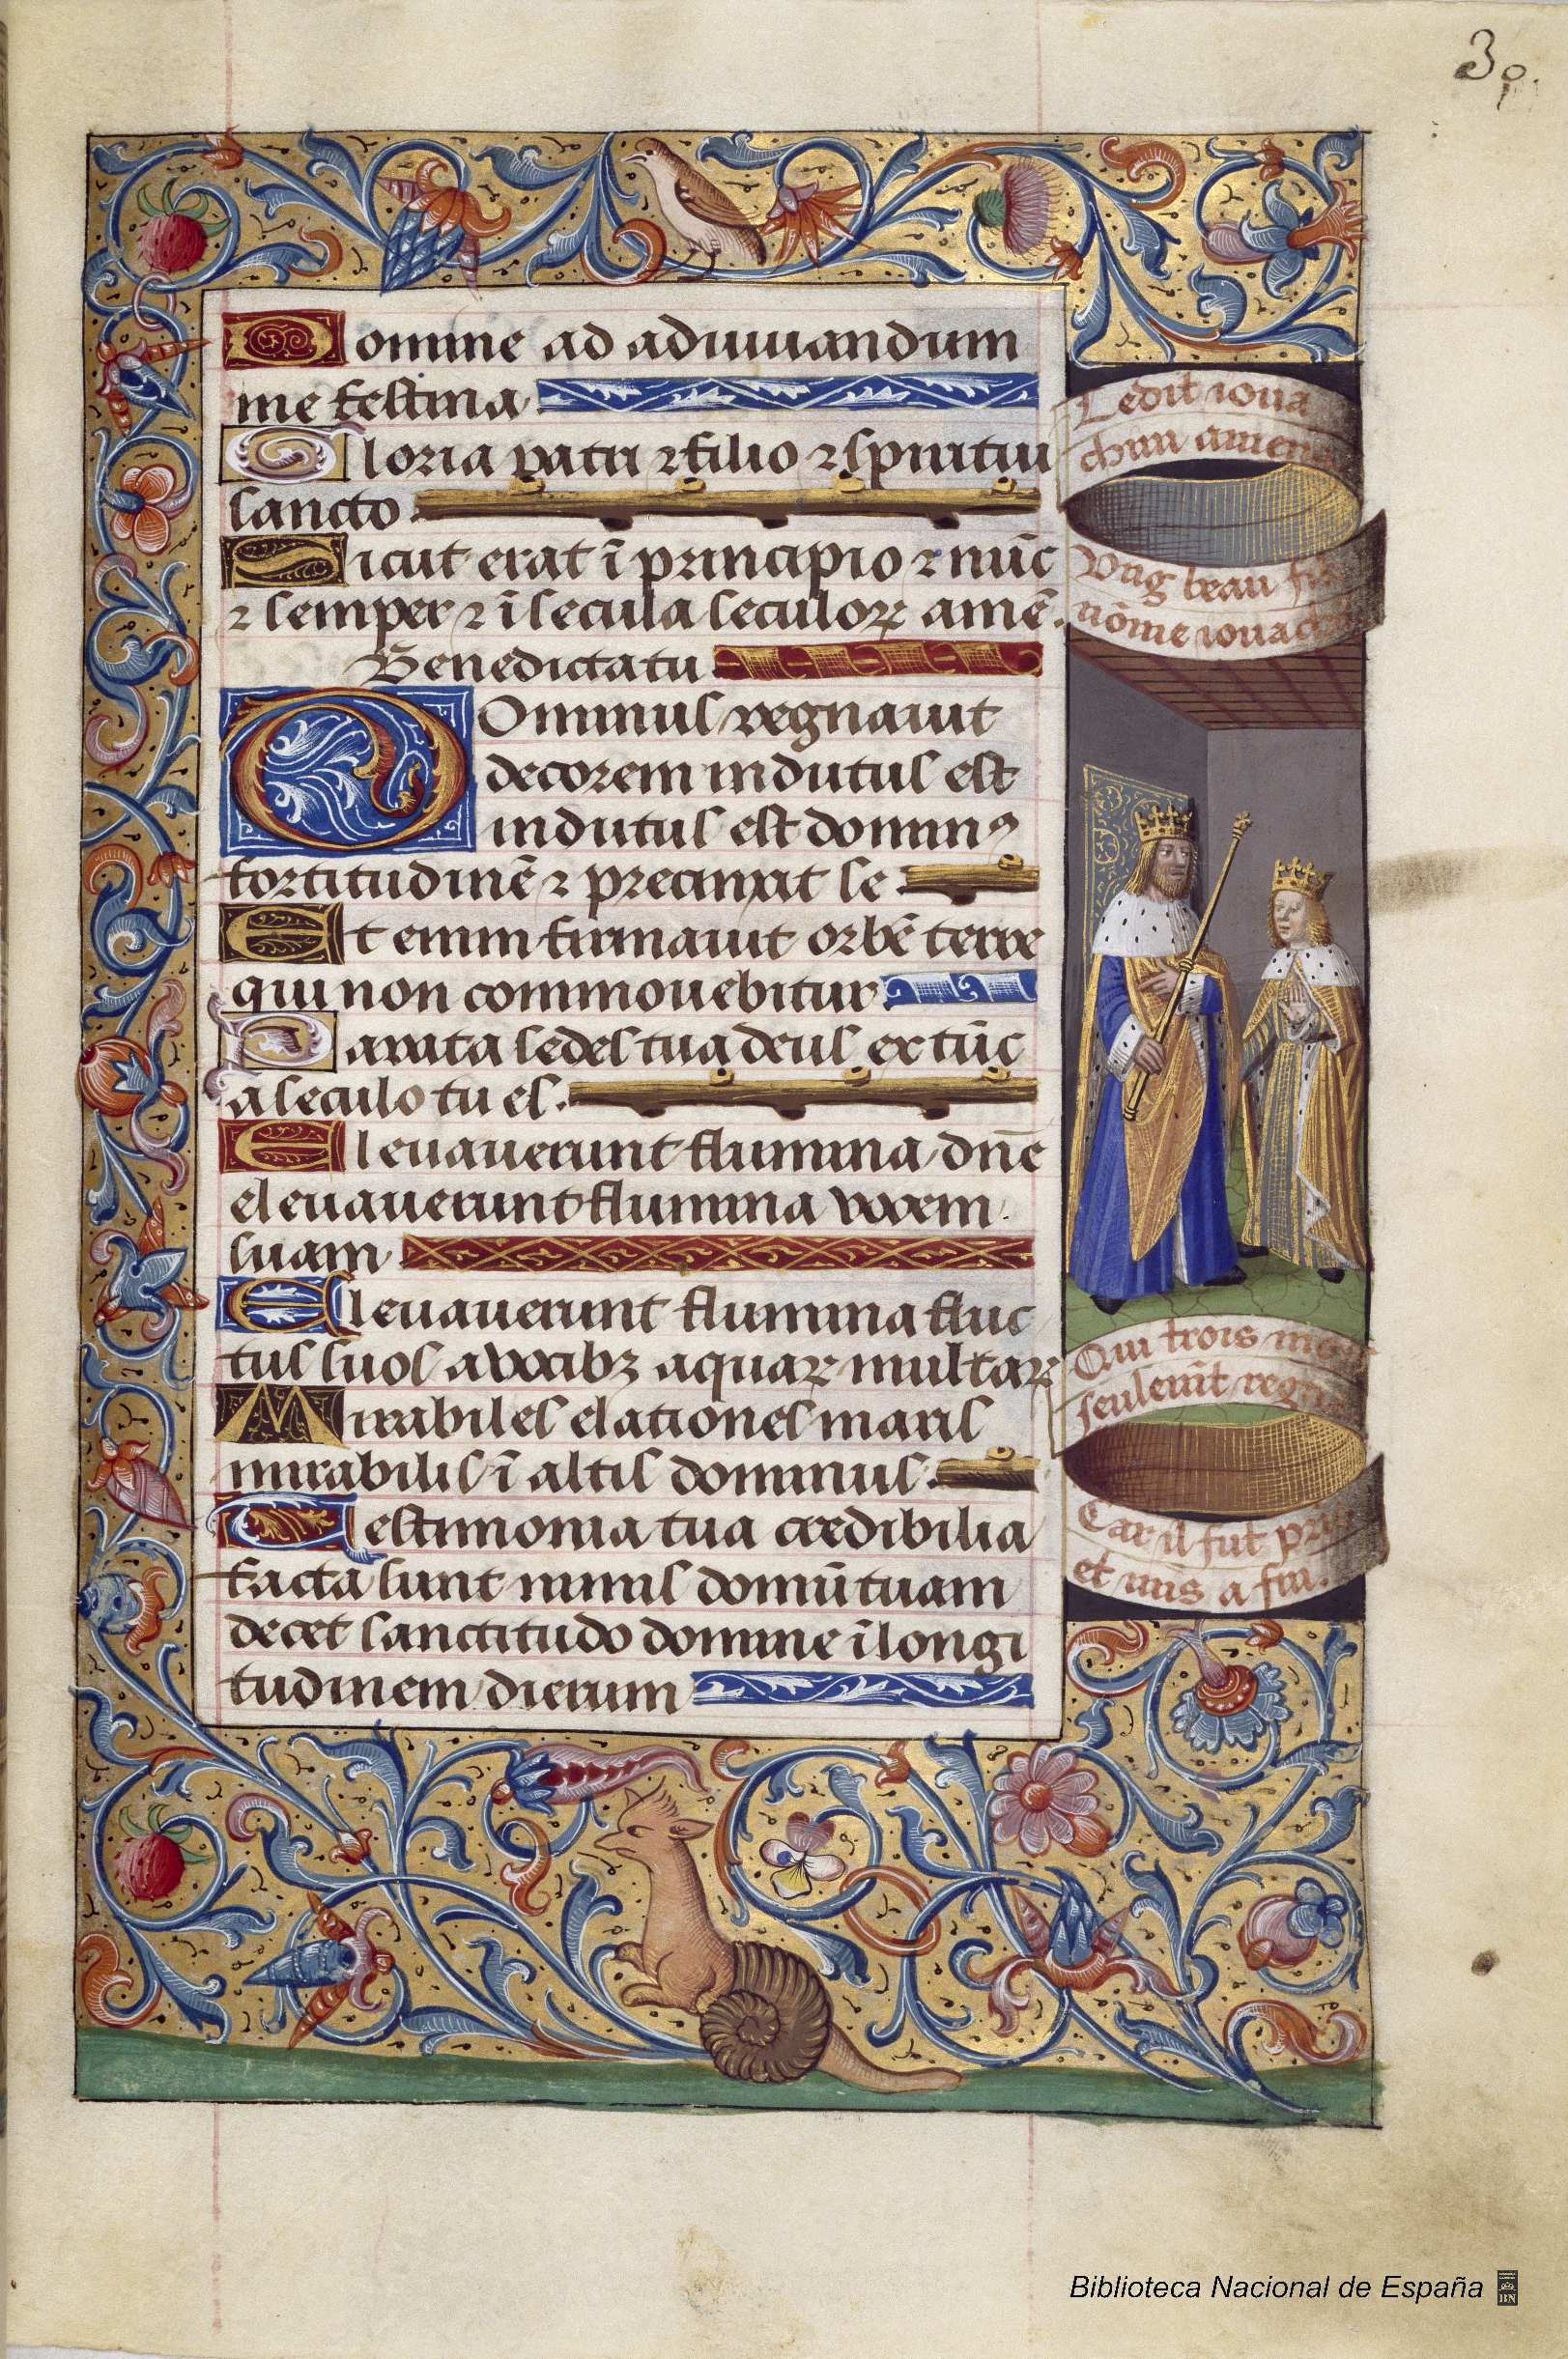 39.
Domine ad adiuuandum
me festina
Gloria patri ⁊ filio ⁊ spiritui
sancto
Sicut erat ī principio ⁊ nūc
⁊ semper ⁊ ī secula seculoꝝ amē.
Benedicta tu
Dominus regnauit
decorem indutus est
indutus est dominꝰ
fortitudinē ⁊ precinxit se
Et enim firmauit orbē terre
qui non commouebitur
Parata sedes tua deus ex tūc
a seculo tu es.
Eleuauerunt flumina dn̄e
eleuauerunt flumina vocem
suam
Eleuauerunt flumina fluc
tus suos a vocibꝫ aquaꝝ multaꝝ
Mirabiles elationes maris
mirabilis ī altis dominus.
Testimonia tua credibilia
facta sunt nimis domū tuam
decet sanctitudo domine ī longi
tudinem dierum
Ledit ioua
chin amena
Vng beau
nōme
Qui trois
seulemt̄
Car il fut
et mis a fin.
Biblioteca Nacional de España
BN